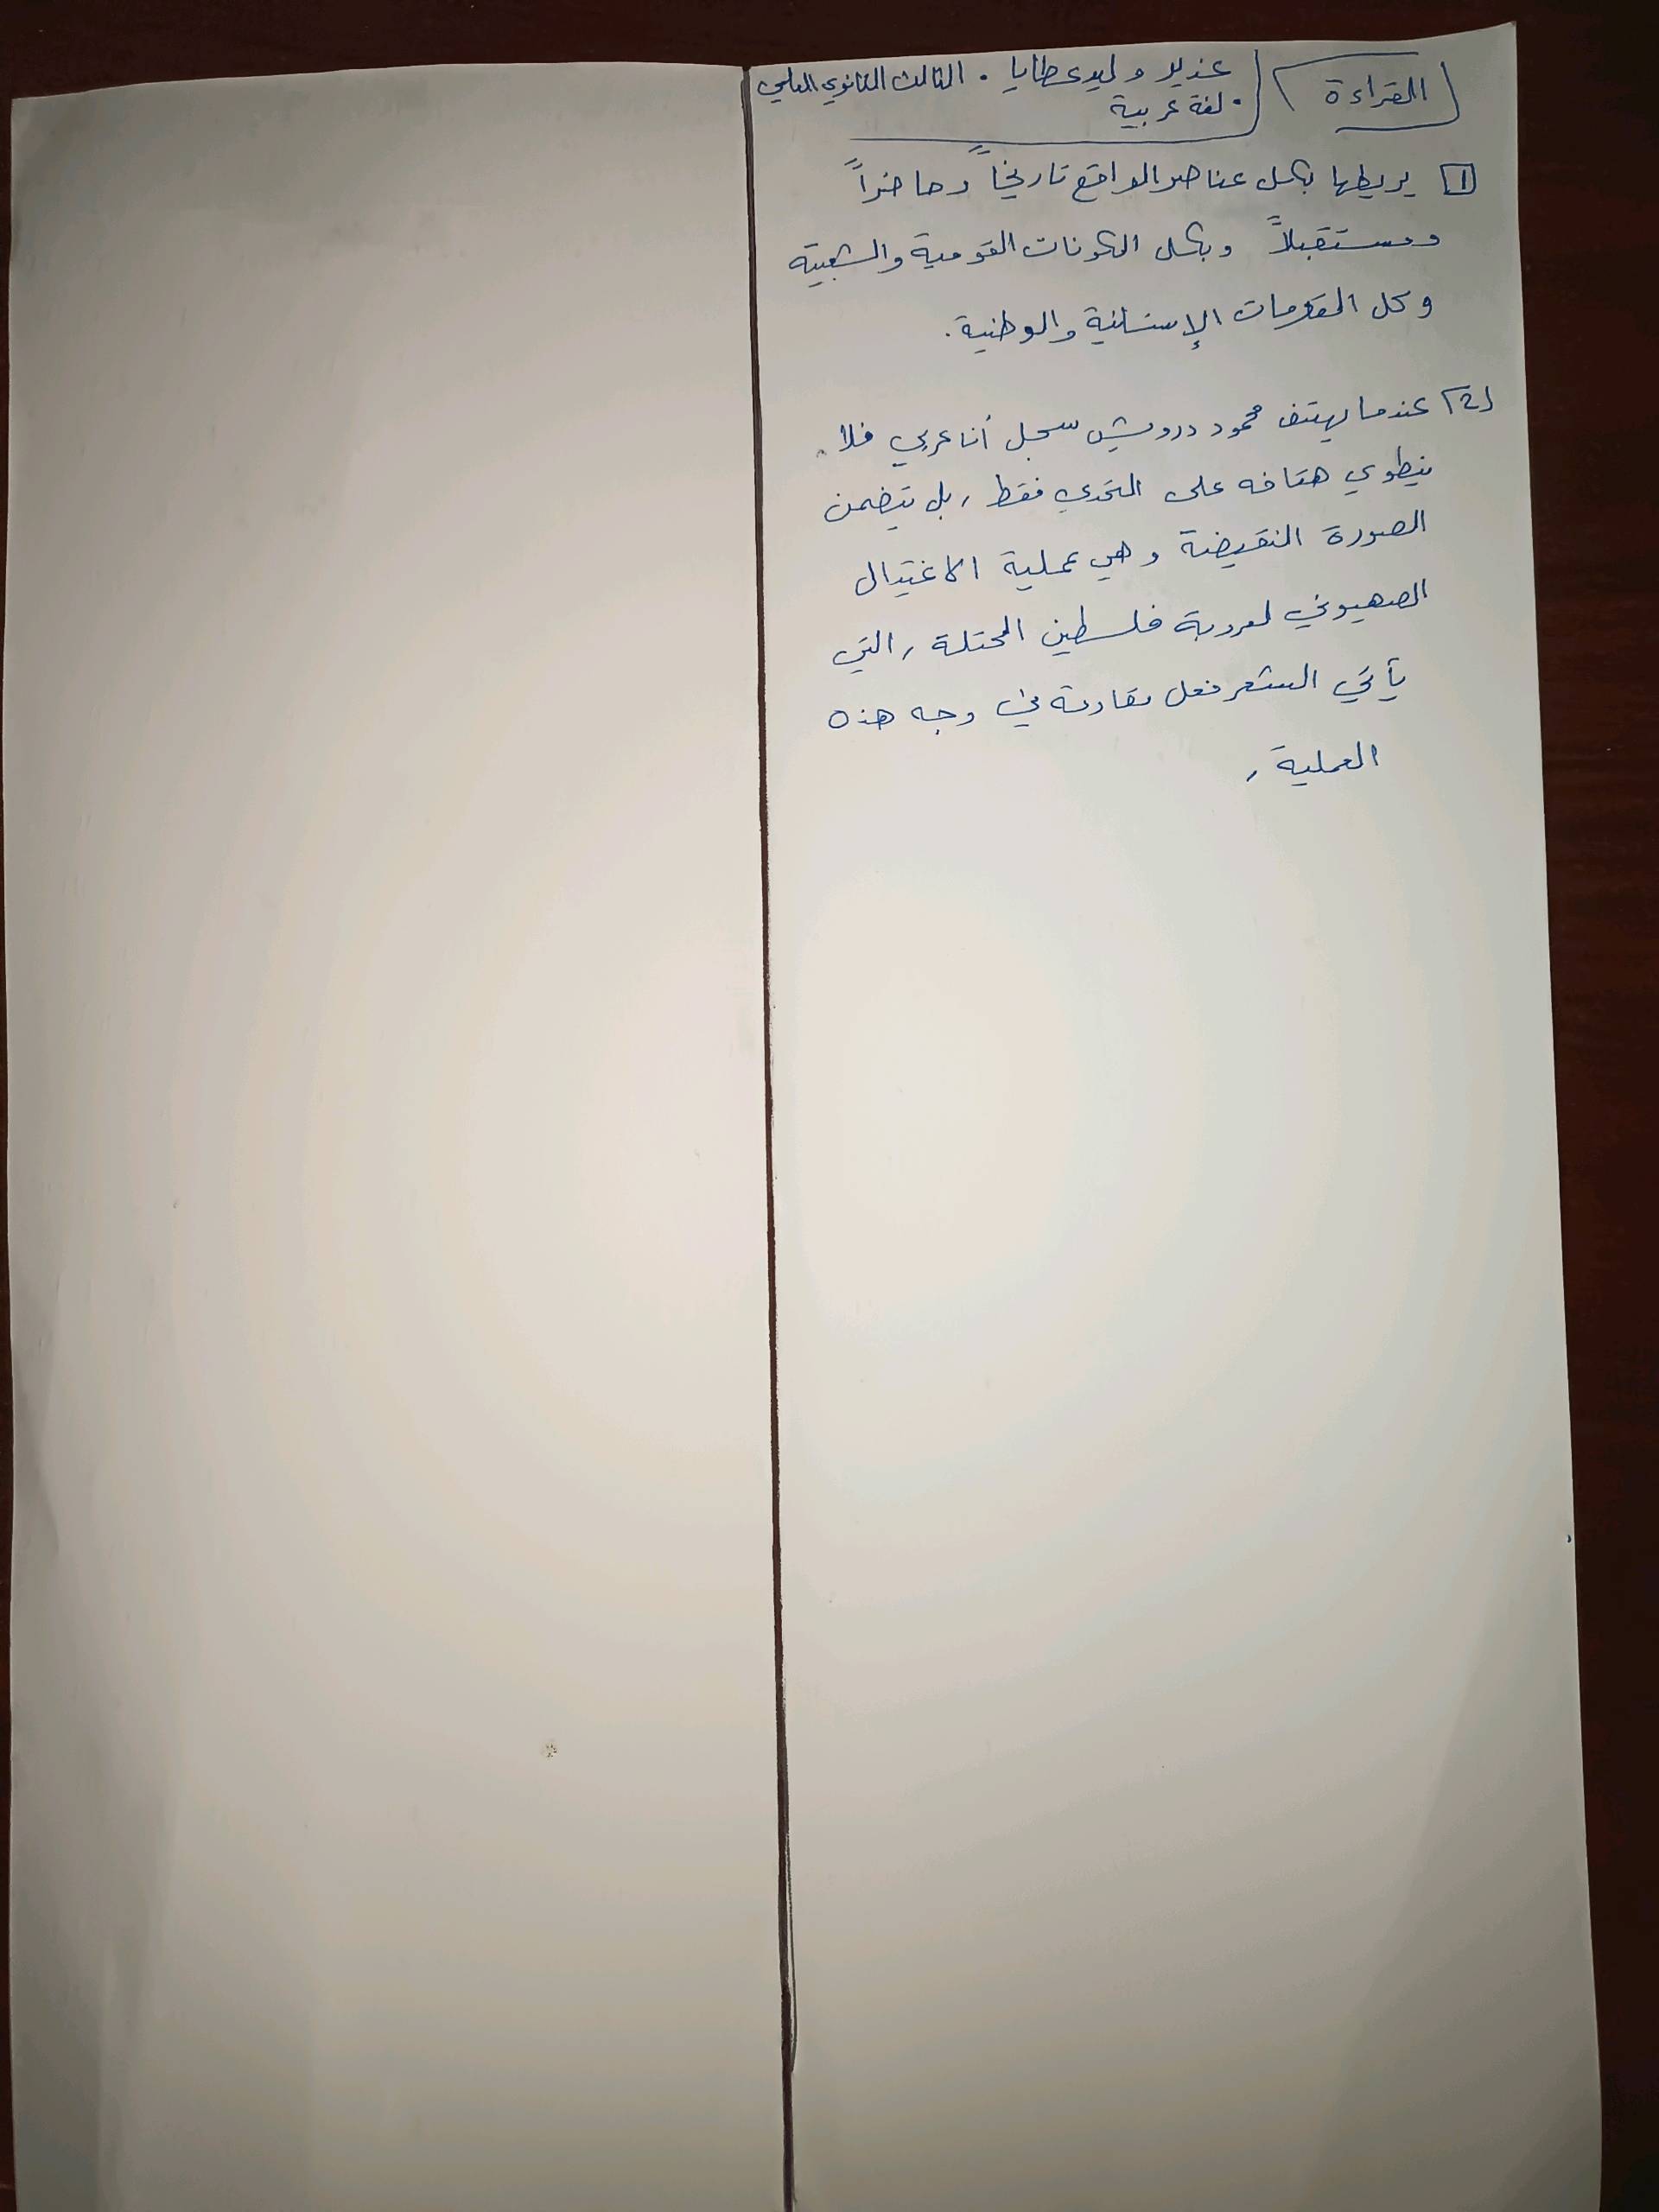 القراءة
غدير وليد عطايا . الثالث الثانوي العلمي
. لغة عربية
1 يربطها بكل عناصر الواقع تاريخاً وحاضراً
ومستقبلاً وبكل المكونات القومية والشعبية
وكل المقومات الإنسانية والوطنية.
2) عندما يهتف محمود درويش سجل أنا عربي فلا
ينطوي هتافه على التحدي فقط، بل يتضمن
الصورة النقيضة وهي عملية الاغتيال
الصهيوني لعروبة فلسطين المحتلة، التي
يأتي الشعر فعل مقاومة في وجه هذه
العملية،